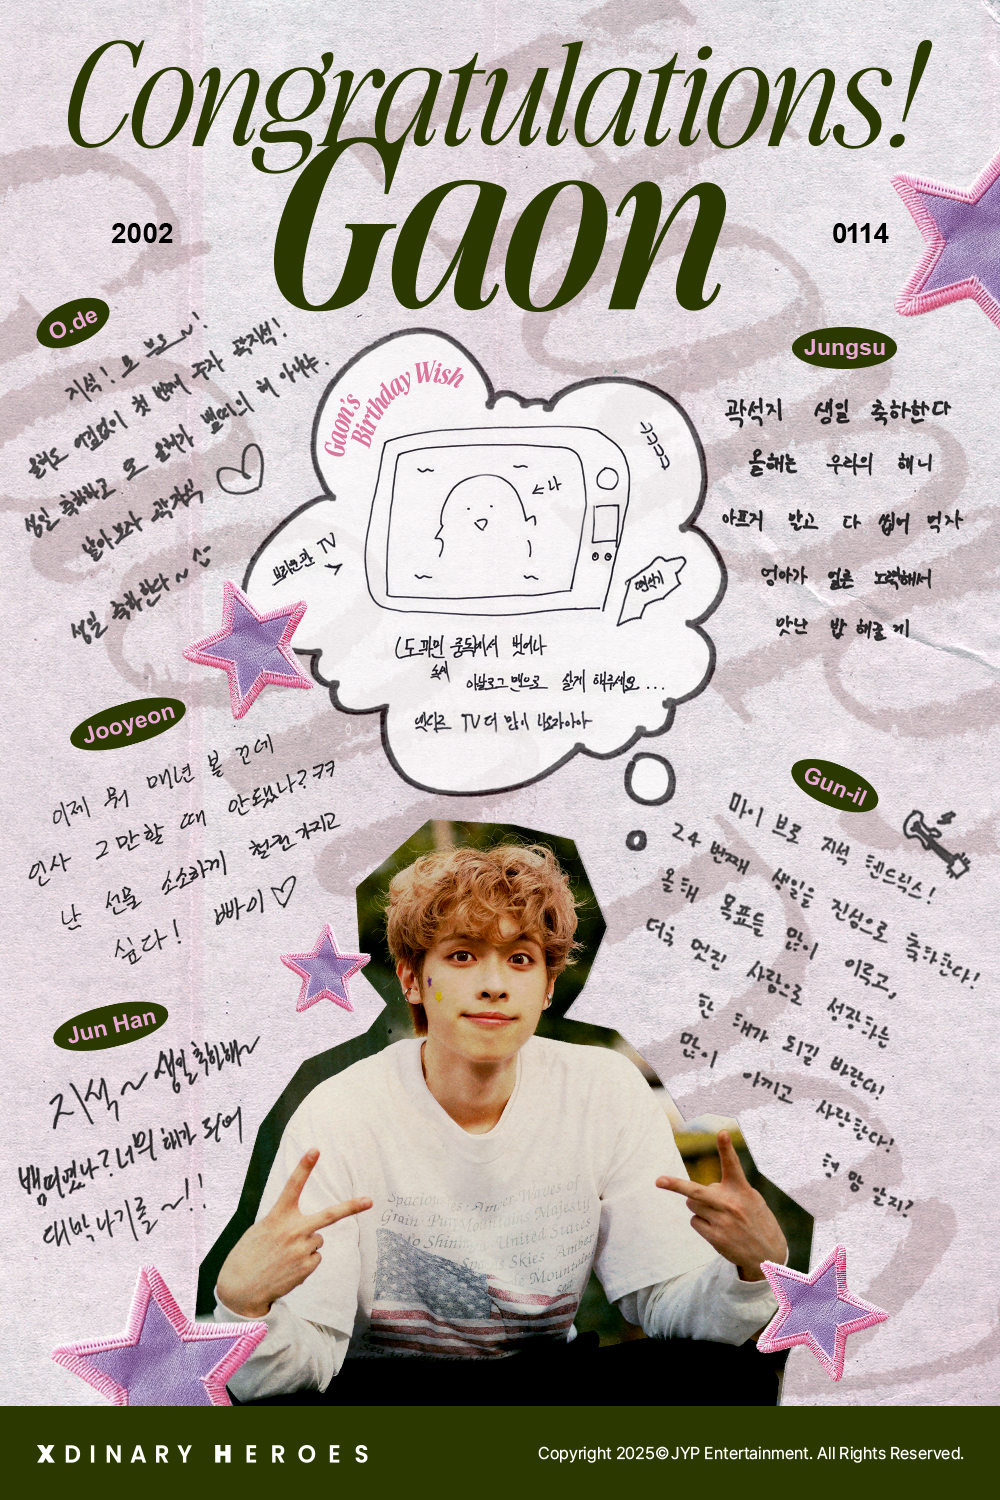 Congratulations!
Gaon
2002
0114
O.de
지석! 요 브로~!
올해도 어김없이 첫 번째 주자 곽지석!
생일 축하하고 또 올해가 뱀띠의 해 아니냐.
날아보자 곽지석
생일 축하한다~
Jungsu
곽석지 생일 축하한다
올해는 우리의 해니
아프지 말고 다 씹어 먹자
엄마가 얼른 노력해서
맛난 밥 해줄게
Gaon's
Birthday Wish
ㅋㅋㅋㅋ
←나
브라운관 TV
(도파민 중독에서 벗어나
숏폼
아날로그 맨으로 살게 해주세요...
밴드로 TV 더 많이 나오라아아
Jooyeon
이제 뭐 매년 볼 건데
인사 그만할 때 안됐나?ㅋㅋ
난 선물 소소하게 철권 가지고
싶다! 빠이♡
Gun-il
마이 브로 지석 헨드릭스!
24번째 생일을 진심으로 축하한다!
올해 목표들 많이 이루고,
더욱 멋진 사람으로 성장하는
한 해가 되길 바란다!
많이 아끼고 사랑한다!
형 맘 알지?
Jun Han
지석~ 생일 축하해~
뱀띠였나? 너의 해가 되어
대박나기를~!!
Spacious Skies Amber Waves of
Grain Purple Mountains Majesty
XDINARY HEROES
Copyright 2025© JYP Entertainment. All Rights Reserved.